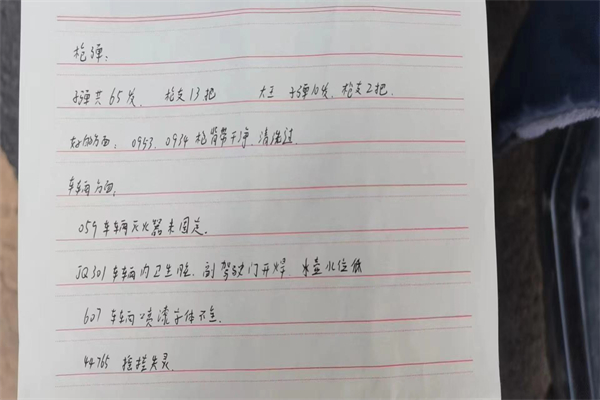 枪弹:
子弹共65发、 枪支13把 大王 子弹10发、枪支2把.
好的方面: 0953、0934枪背带干净、清洗过.
车辆方面.
059车车辆灭火器未固定.
JQ301车车辆内卫生脏、副驾驶门开焊、水壶水位低
607车车辆喷漆字体不全.
44765 摇控失灵.